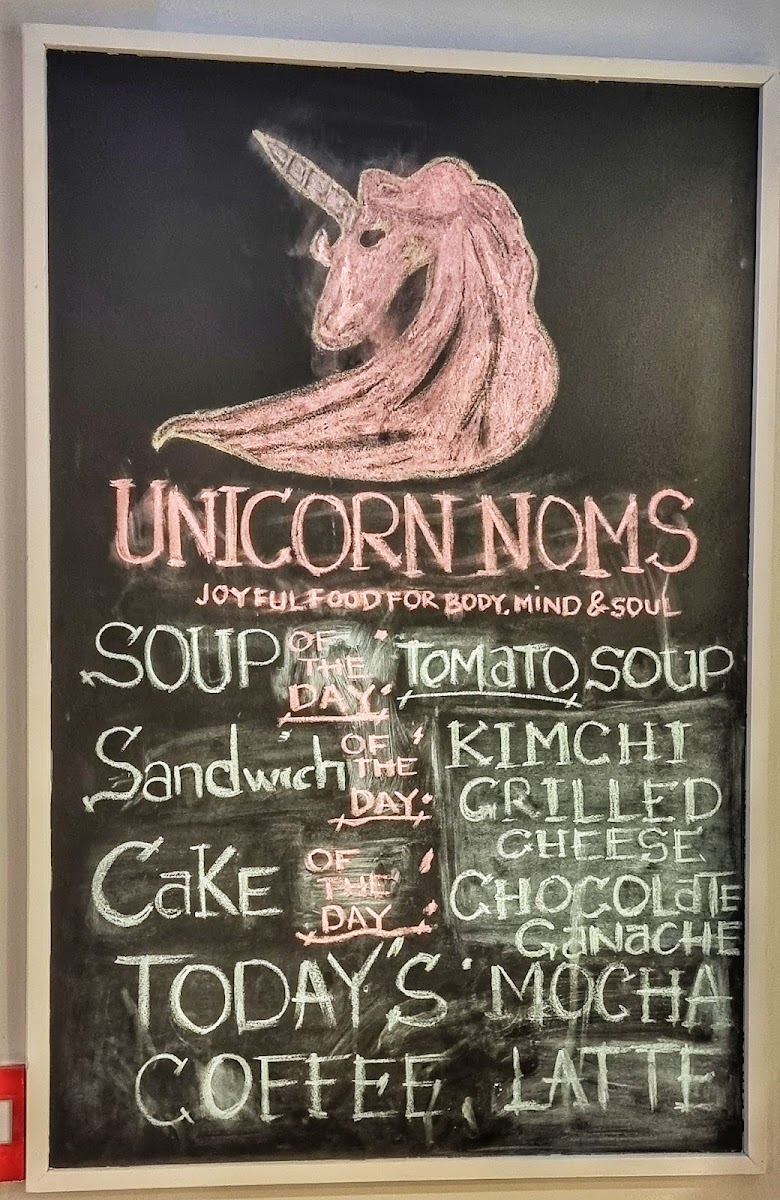 UNICORN NOMS
JOYFUL FOOD FOR BODY, MIND & SOUL
SOUP OF THE DAY: TOMATO SOUP
Sandwich OF THE DAY: KIMCHI
GRILLED
CHEESE
CAKE OF THE DAY: CHOCOLATE
GANACHE
TODAY'S MOCHA
COFFEE: LATTE